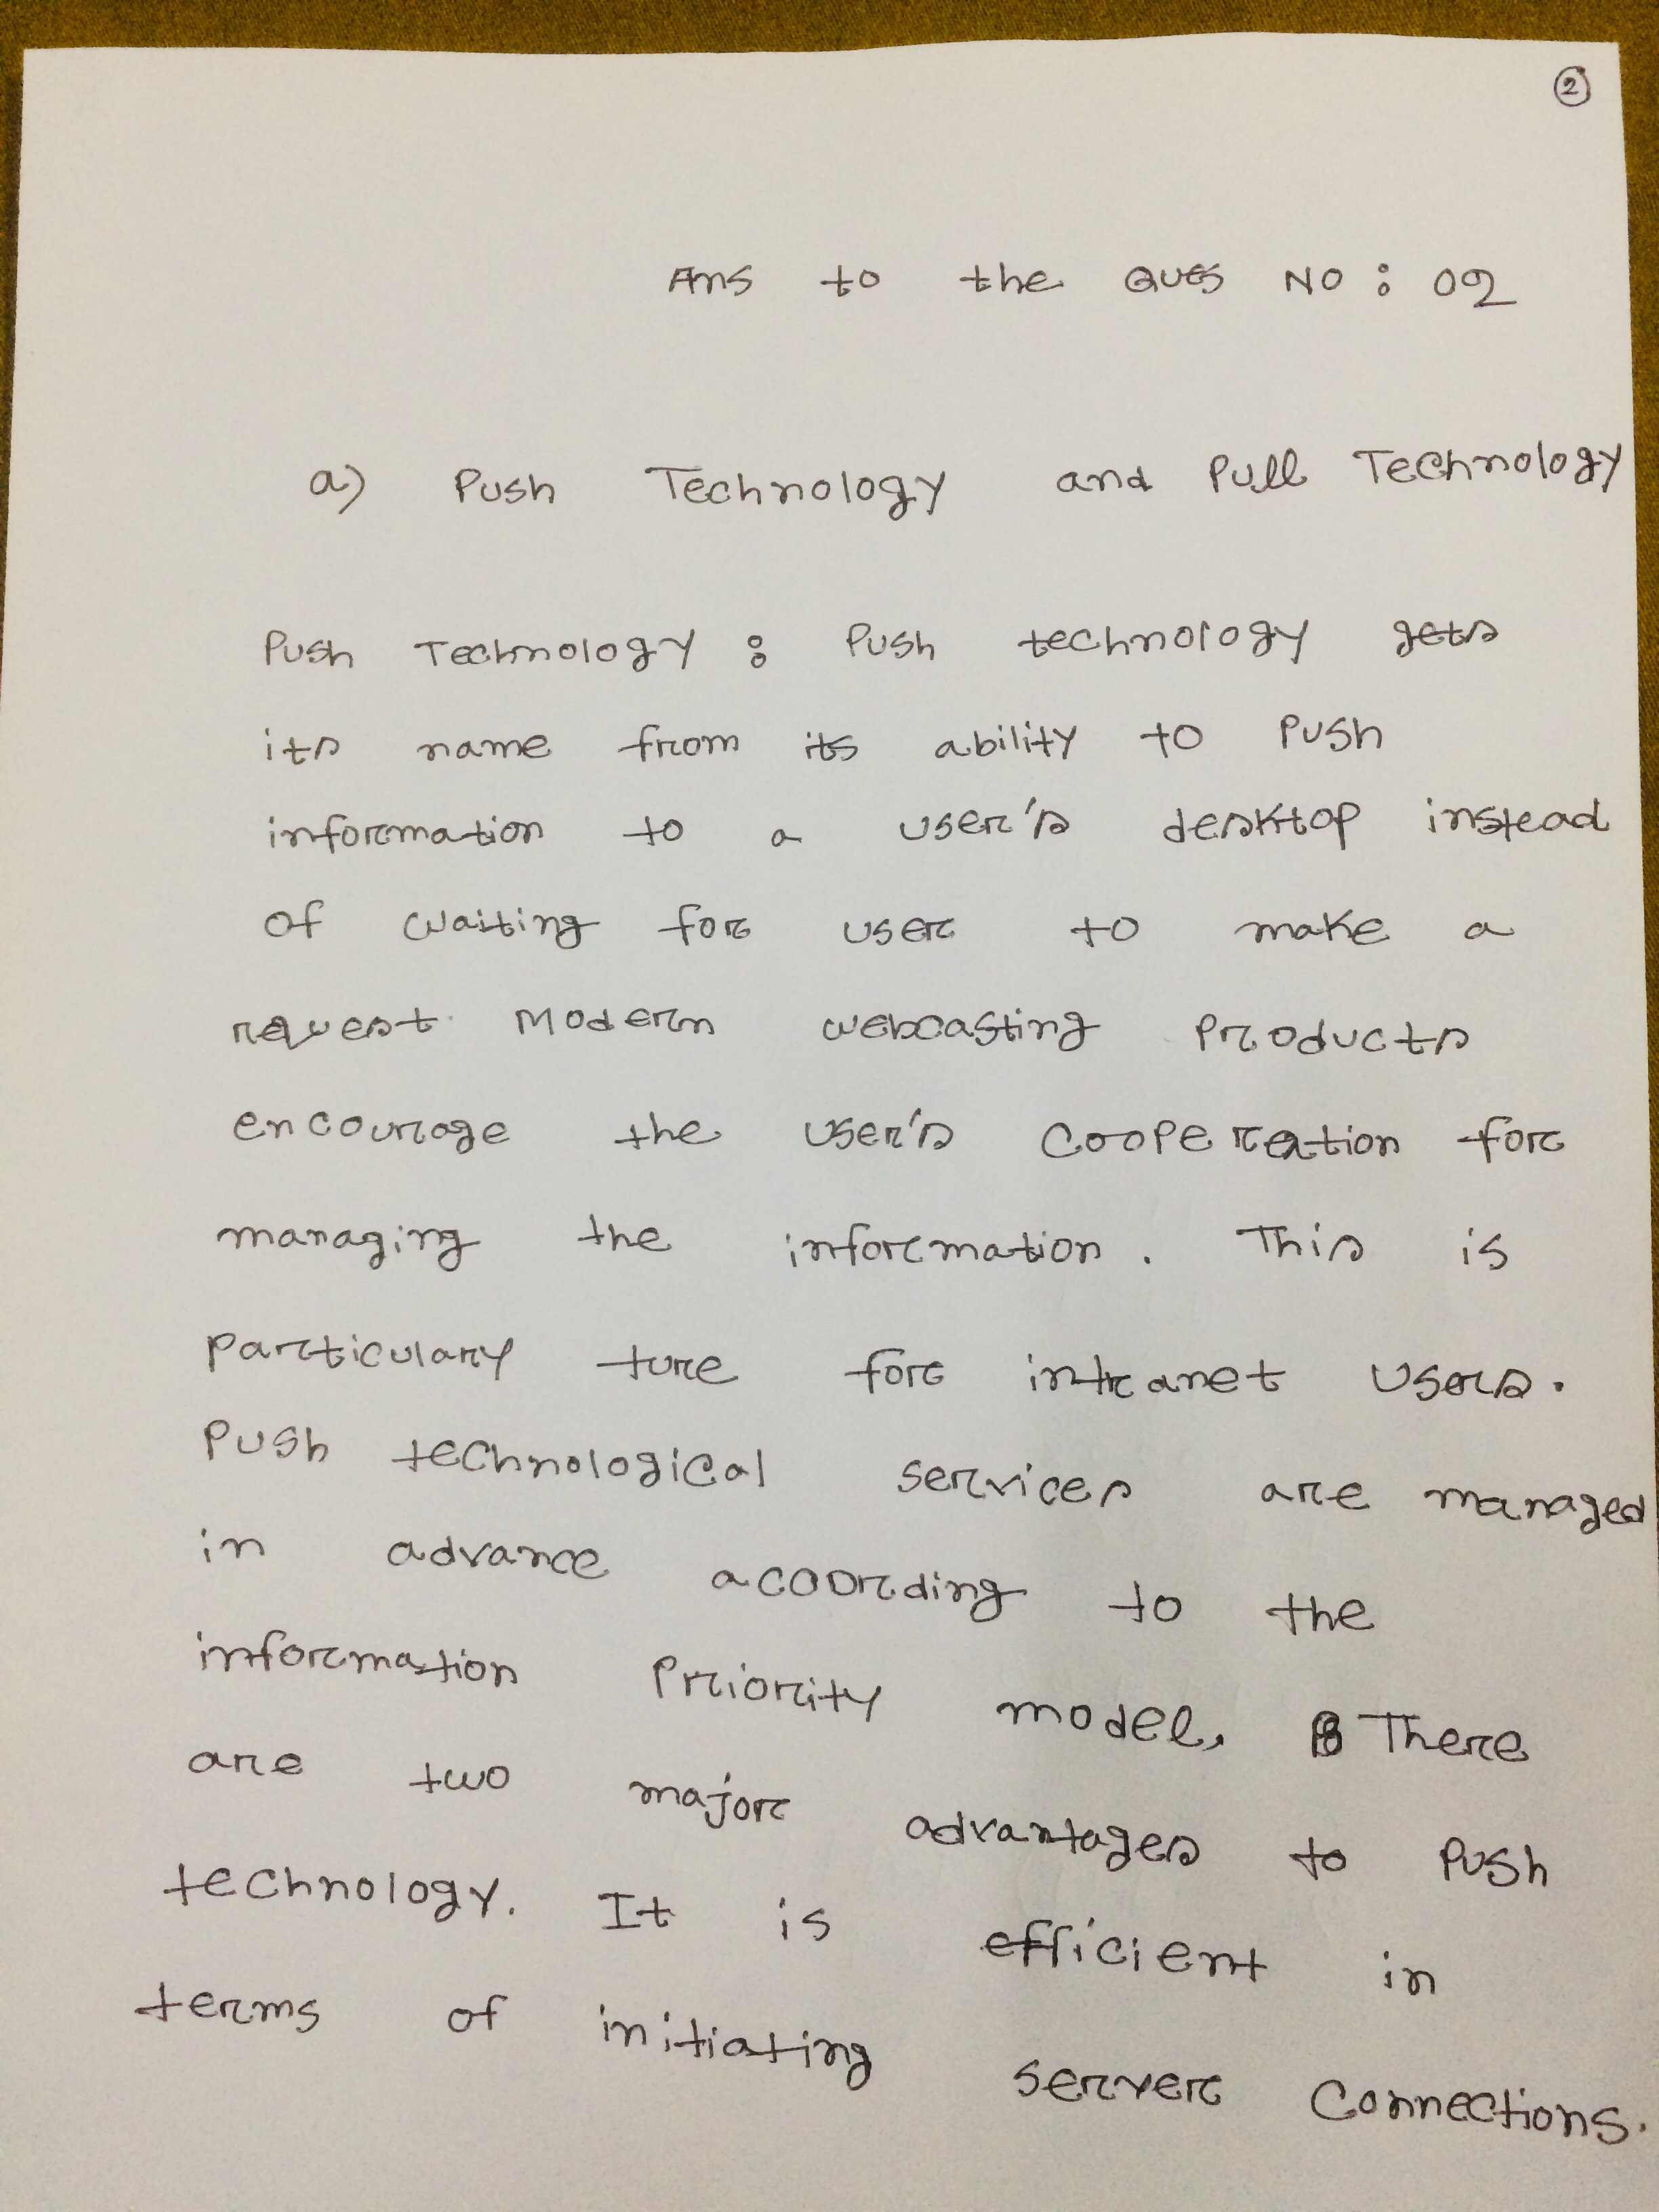 2
Ans to the Ques NO : 02
a) Push Technology and Pull Technology
Push Technology : Push technology gets
its name from its ability to Push
information to a user's desktop instead
of waiting for user to make a
request. Modern webcasting Products
encourage the user's Cooperation for
managing the information. This is
particulary ture for intranet users.
Push technological services are managed
in advance acoording to the
information Priority model. There
are two major advantages to Push
technology. It is efficient in
terms of initiating server Connections.